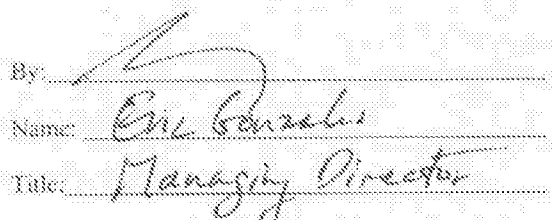 By:
Name: Eric Gonzales
Title: Managing Director